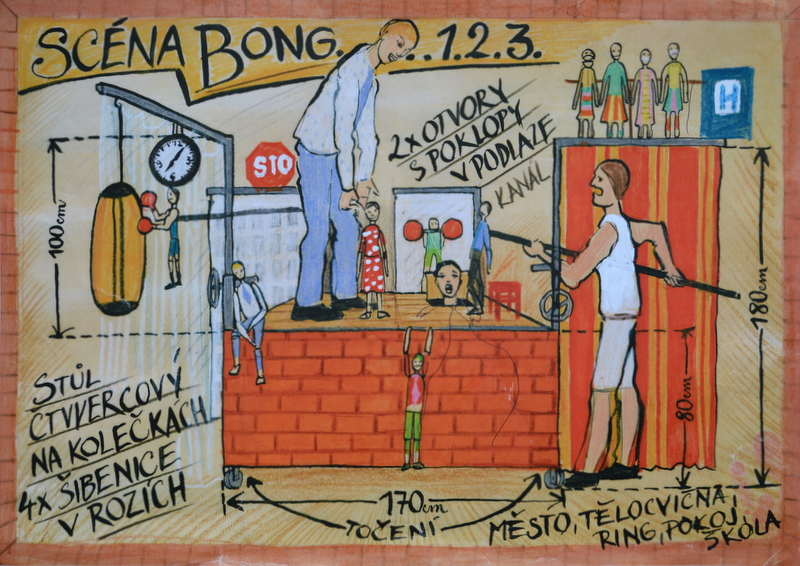 SCÉNA BONG. . . 1. 2. 3.
2x OTVORY
S POKLOPY
V PODLAZE
KANÁL
H
STO
100cm
180cm
80cm
STŮL
ČTVERCOVÝ
NA KOLEČKÁCH
4x ŠIBENICE
V ROZÍCH
170cm
TOČENÍ
MĚSTO, TĚLOCVIČNA,
RING, POKOJ,
ŠKOLA